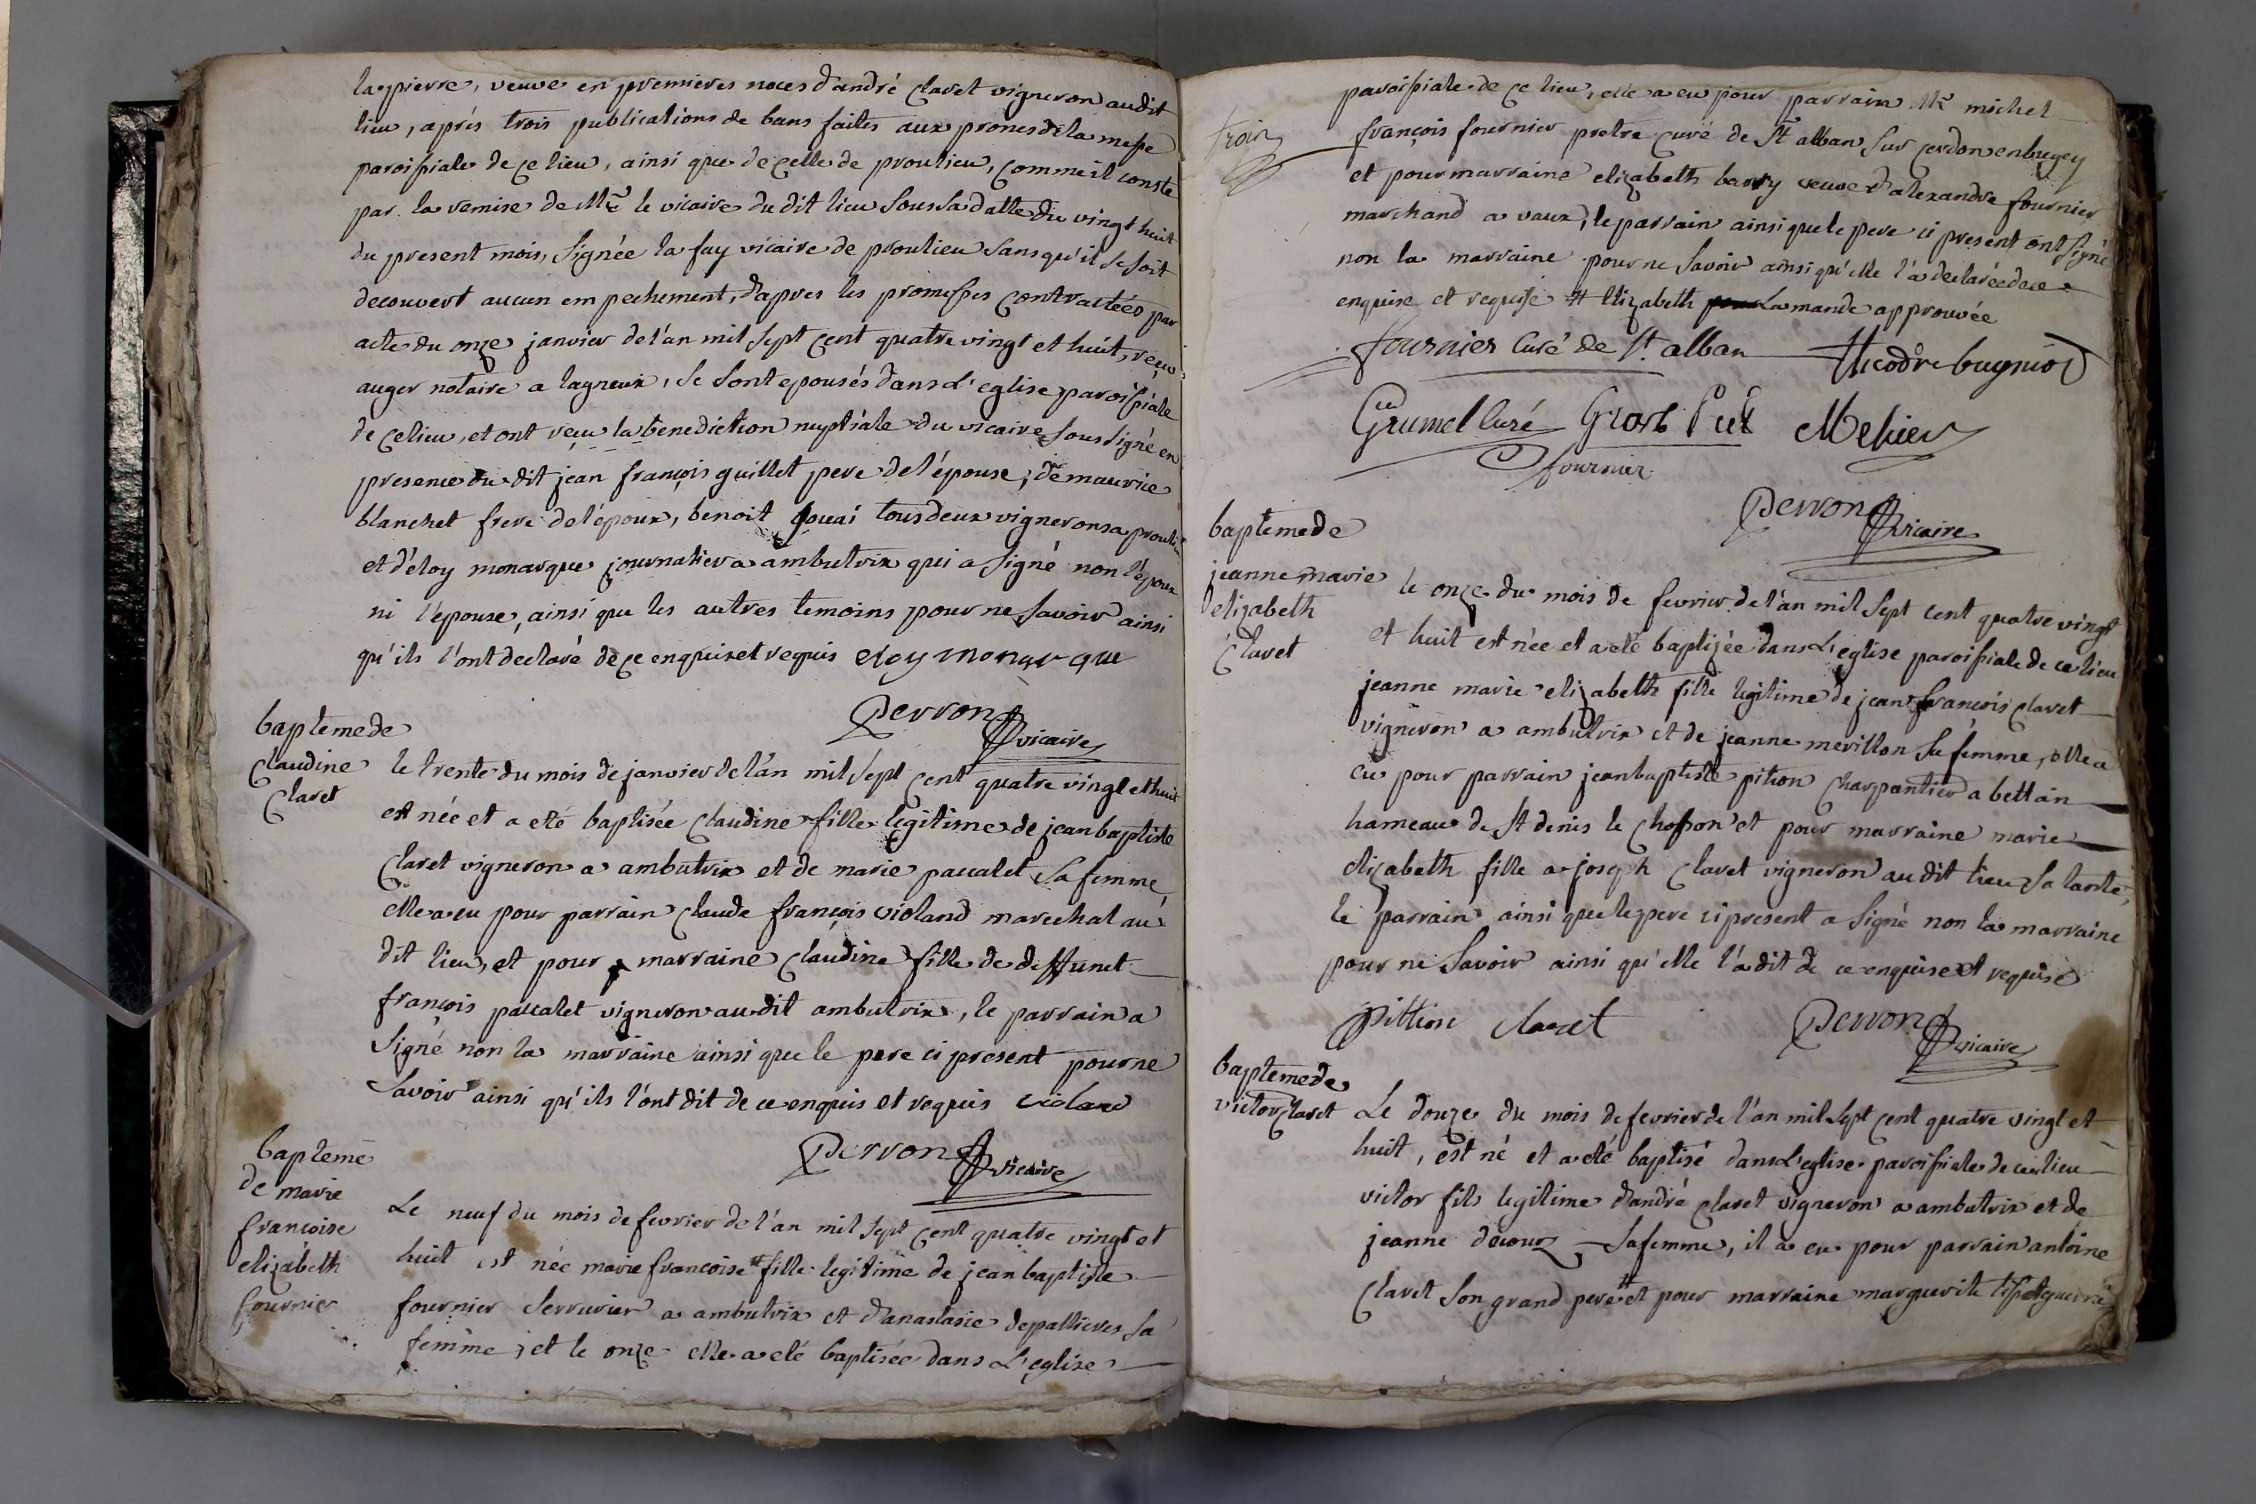 lapierre, veuve en premieres noces d'andré claret vigneron audit
lieu, aprés trois publications de bans faites aux prones de la messe
paroissiale de ce lieu, ainsi que de celle de proulieu, comme il conste
par la remise de Mre le vicaire du dit lieu sous sa datte du vingt huit
du present mois, signée la fay vicaire de proulieu sans qu'il se soit
decouvert aucun empechement, d'apres les promesses contractées par
acte du onze janvier de l'an mil sept cent quatre vingt et huit, reçu
auger notaire a lagneux, se sont epousés dans l'eglise paroissiale
de ce lieu, et ont reçu la benediction nuptiale du vicaire soussigné en
presence du dit jean françois guillet pere de l'épouse, de maurice
blanchet frere de l'époux, benoit jouai tous deux vignerons a proulieu
et d'éloy monarque journalier a ambutrix qui a signé non l'époux
ni l'epouse, ainsi que les autres temoins pour ne savoir ainsi
qu'ils l'ont declaré de ce enquis et requis eloy monarque
Perron vicaire
bapteme de
claudine
claret
le trente du mois de janvier de l'an mil sept cent quatre vingt et huit
est née et a eté baptisée claudine fille legitime de jean baptiste
claret vigneron a ambutrix et de marie paccalet sa femme
elle a eu pour parrain claude françois violand marechal au
dit lieu, et pour marraine claudine fille de deffunct
françois paccalet vigneron audit ambutrix, le parrain a
signé non la marraine ainsi que le pere ci present pour ne
savoir ainsi qu'ils l'ont dit de ce enquis et requis violand
Perron vicaire
bapteme
de marie
francoise
elizabeth
fournier
Le neuf du mois de fevrier de l'an mil sept cent quatre vingt et
huit est née marie francoise # fille legitime de jean baptiste
fournier serrurier a ambutrix et d'anastasie depallieres sa
femme, et le onze elle a eté baptisée dans l'eglise
trois
paroissiale de ce lieu, elle a eu pour parrain Mre michel
françois fournier pretre curé de st alban sur cerdon en bugey
et pour marraine elizabeth barry veuve d'alexandre fournier
marchand a vaux, le parrain ainsi que le pere ci present ont signé
non la marraine pour ne savoir ainsi qu'elle l'a declaré de ce
enquise et requise # elizabeth la mande approuvée
fournier curé de st. alban Theodre bugniod
Grumel curé Mehier
fournier
Perron vicaire
bapteme de
jeanne marie
elizabeth
claret
le onze du mois de fevrier de l'an mil sept cent quatre vingt
et huit est née et a eté baptizée dans l'eglise paroissiale de ce lieu
jeanne marie elizabeth fille legitime de jean françois claret
vigneron a ambutrix et de jeanne merillon sa femme, elle a
eu pour parrain jean baptiste pition charpantier a bettan
hameau de st denis le chosson et pour marraine marie
elizabeth fille a joseph claret vigneron au dit lieu sa tante,
le parrain ainsi que le pere ci present a signé non la marraine
pour ne savoir ainsi qu'elle l'a dit de ce enquise et requise
pittion claret Perron vicaire
bapteme de
victor claret
Le douze du mois de fevrier de l'an mil sept cent quatre vingt et
huit, est né et a eté baptisé dans l'eglise paroissiale de ce lieu
victor fils legitime d'andré claret vigneron a ambutrix et de
jeanne decour sa femme, il a eu pour parrain antoine
claret son grand pere # et pour marraine marguerite